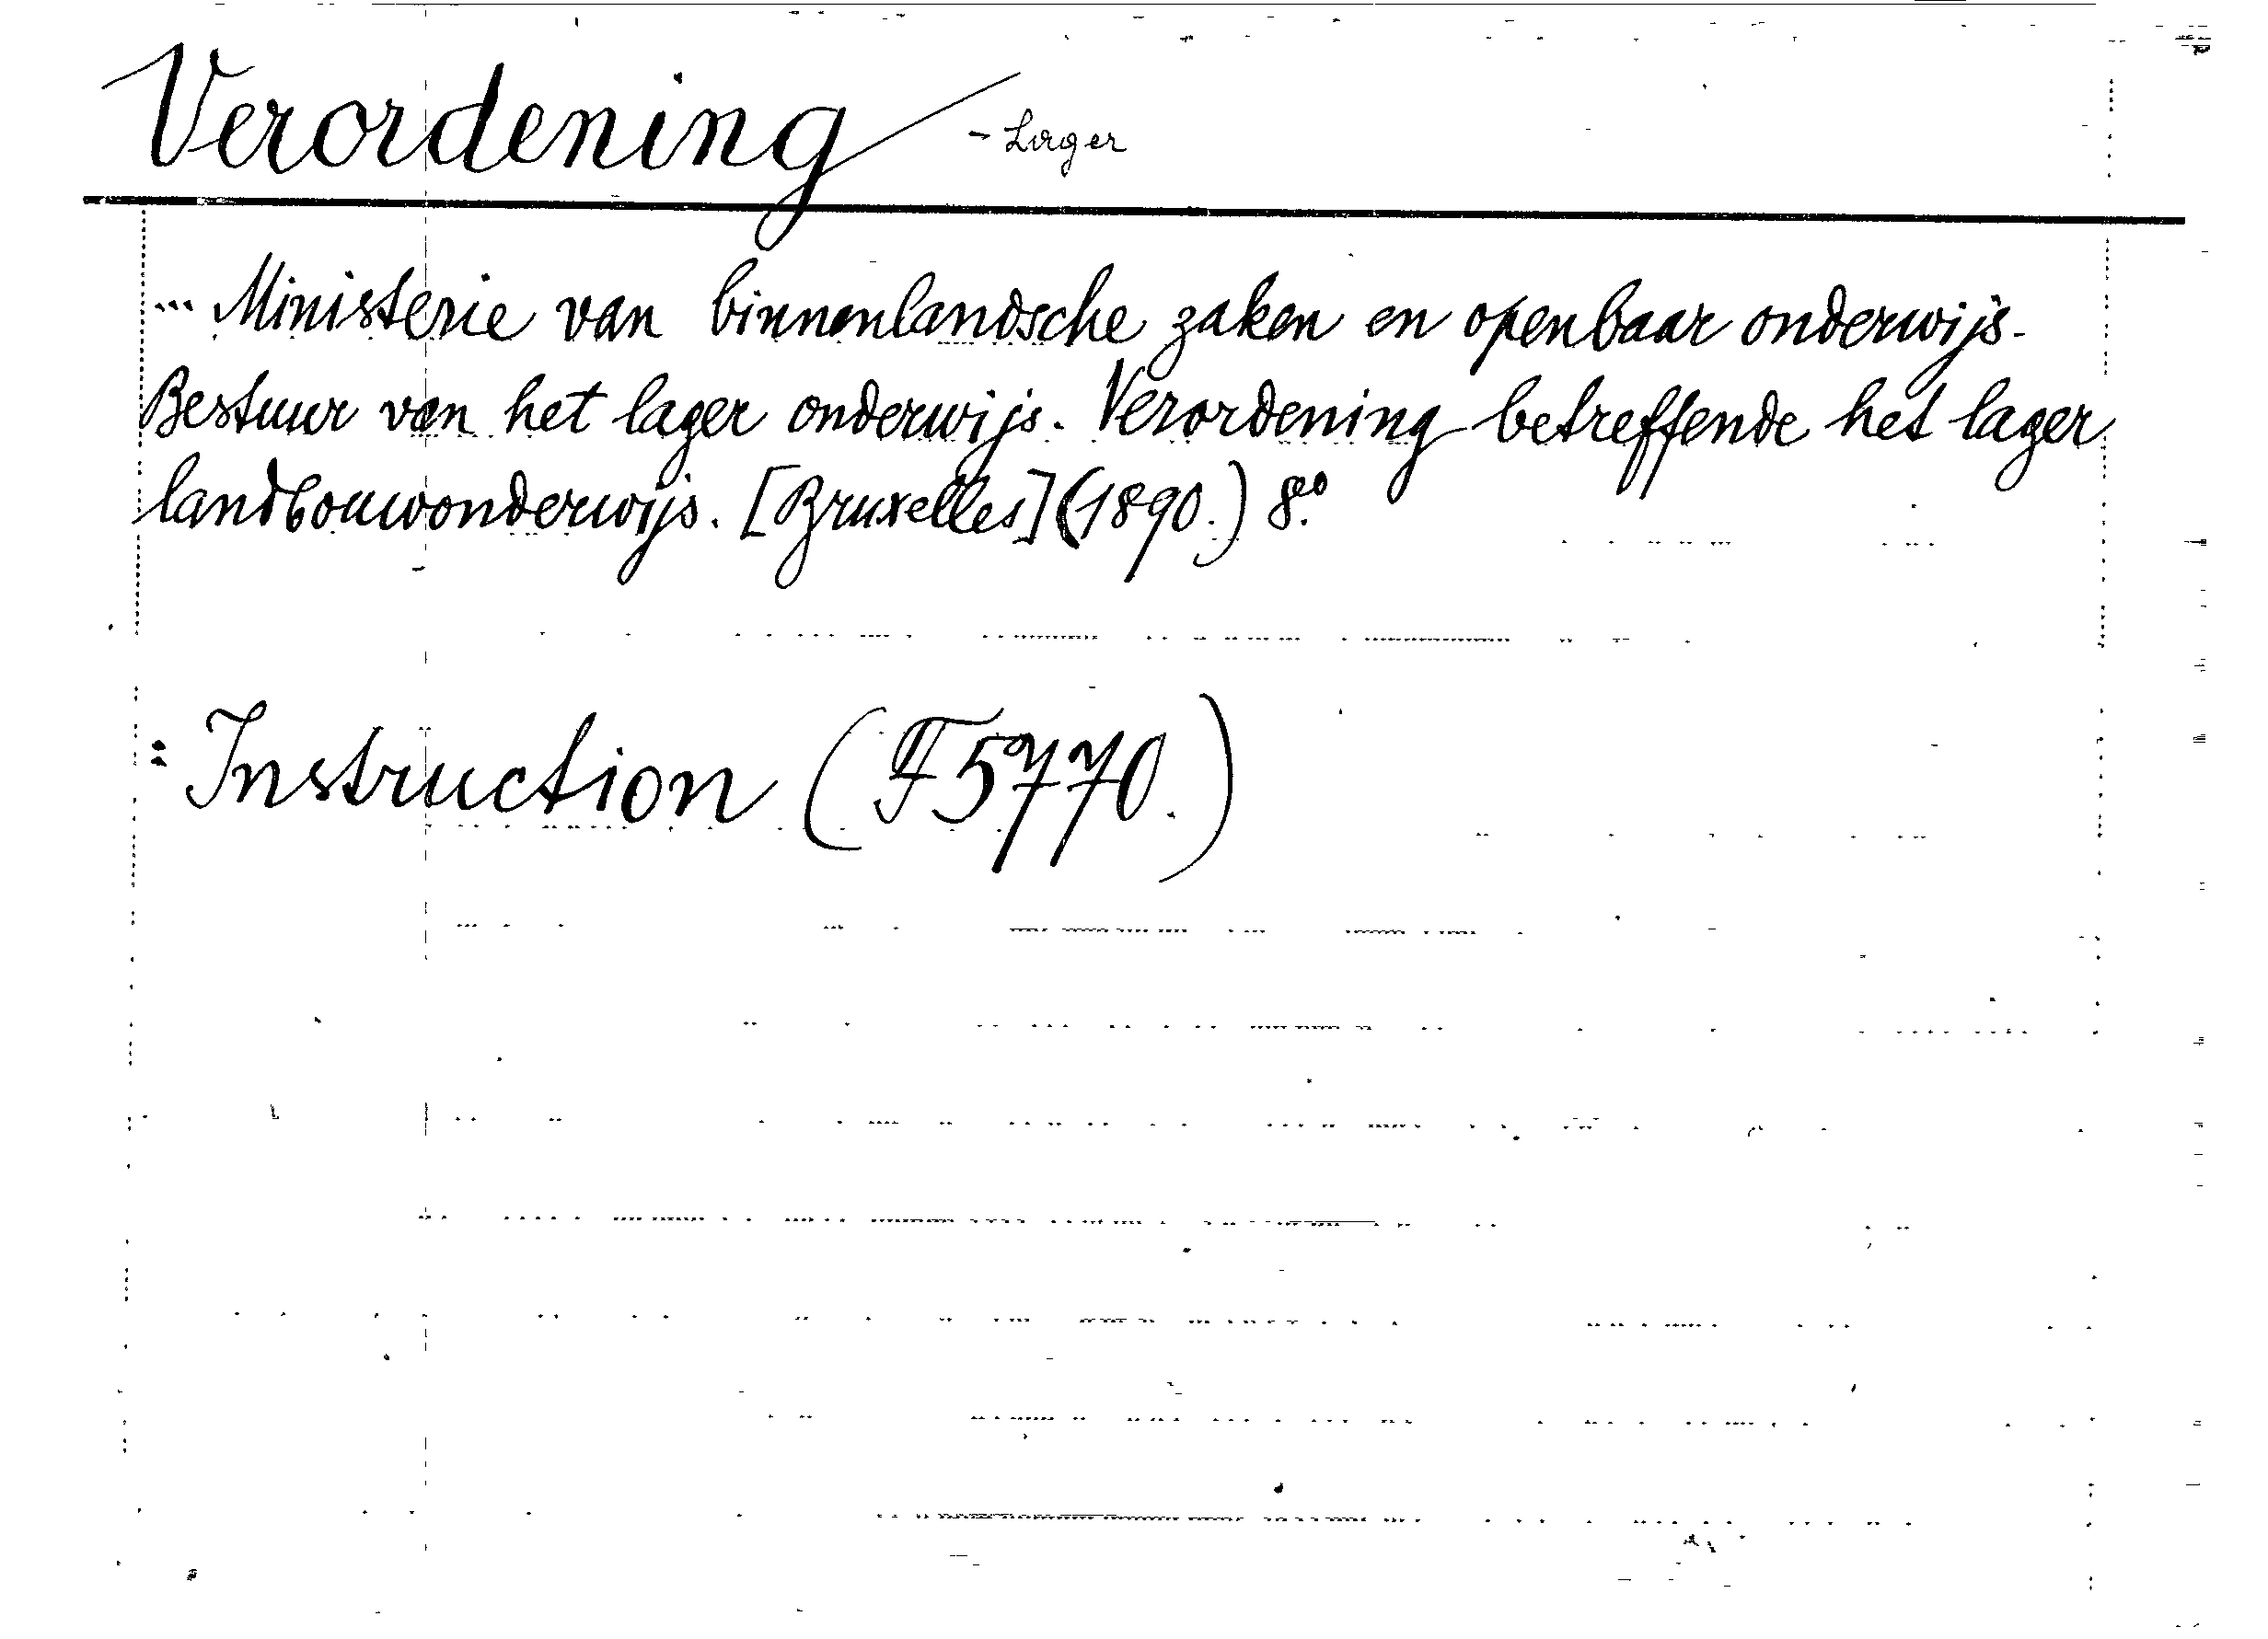 Verordening - Lager
... Ministerie van binnenlandsche zaken en openbaar onderwijs.
Bestuur van het lager onderwijs. Verordening betreffende het lager
landbouwonderwijs. [Bruxelles] (1890.) 8º.
: Instruction (F5770.)